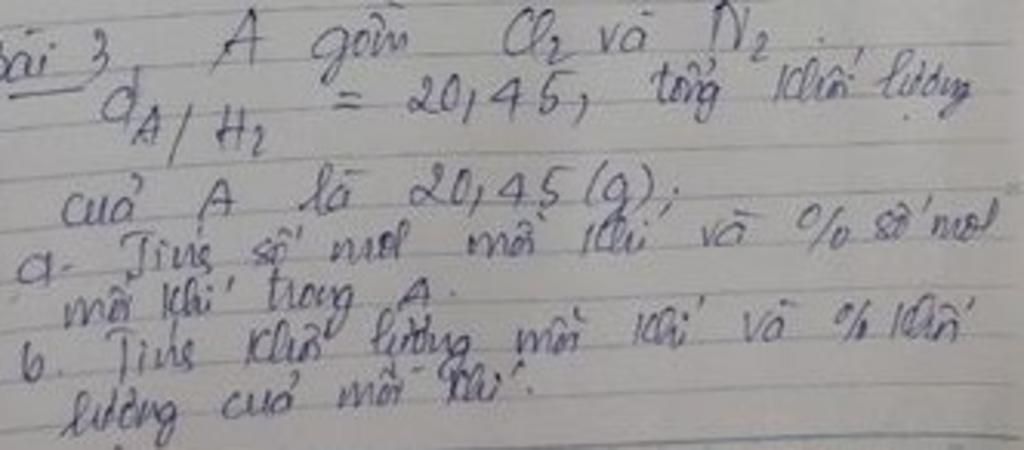 Bài 3, A gồm Cl2 và N2.
dA/H2 = 20,45, tổng khối lượng
của A là 20,45 (g).
a. Tính số mol mỗi khí và % số mol
mỗi khí trong A.
b. Tính khối lượng mỗi khí và % khối
lượng của mỗi khí.